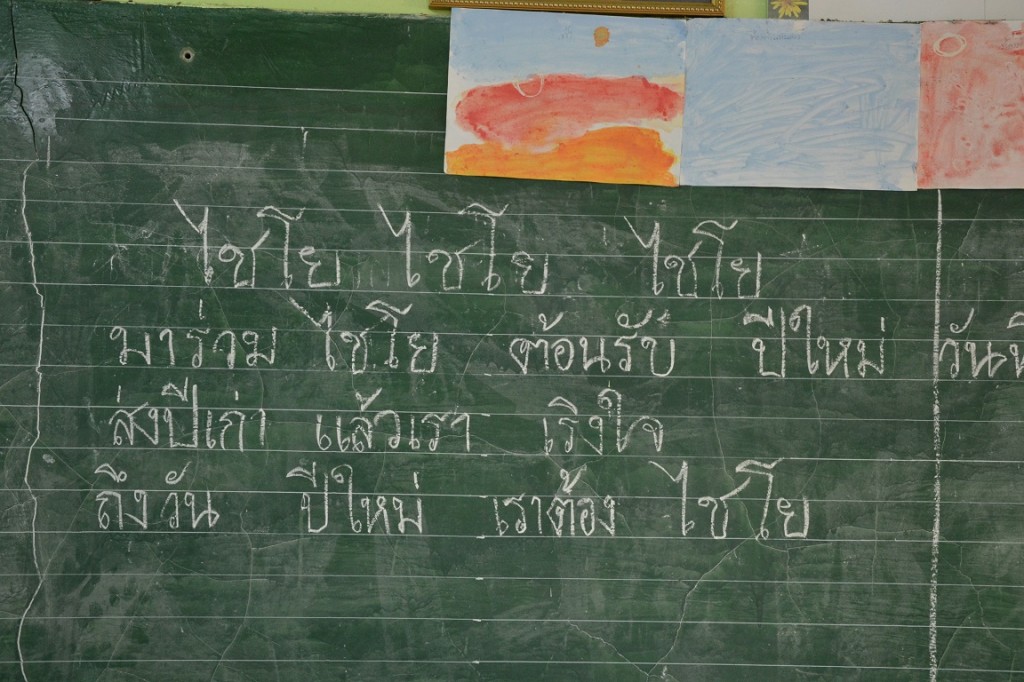 ไชโย ไชโย ไชโย
มาร่วม ไชโย ต้อนรับ ปีใหม่
ส่งปีเก่า แล้วเรา เริงใจ
ถึงวัน ปีใหม่ เราต้อง ไชโย